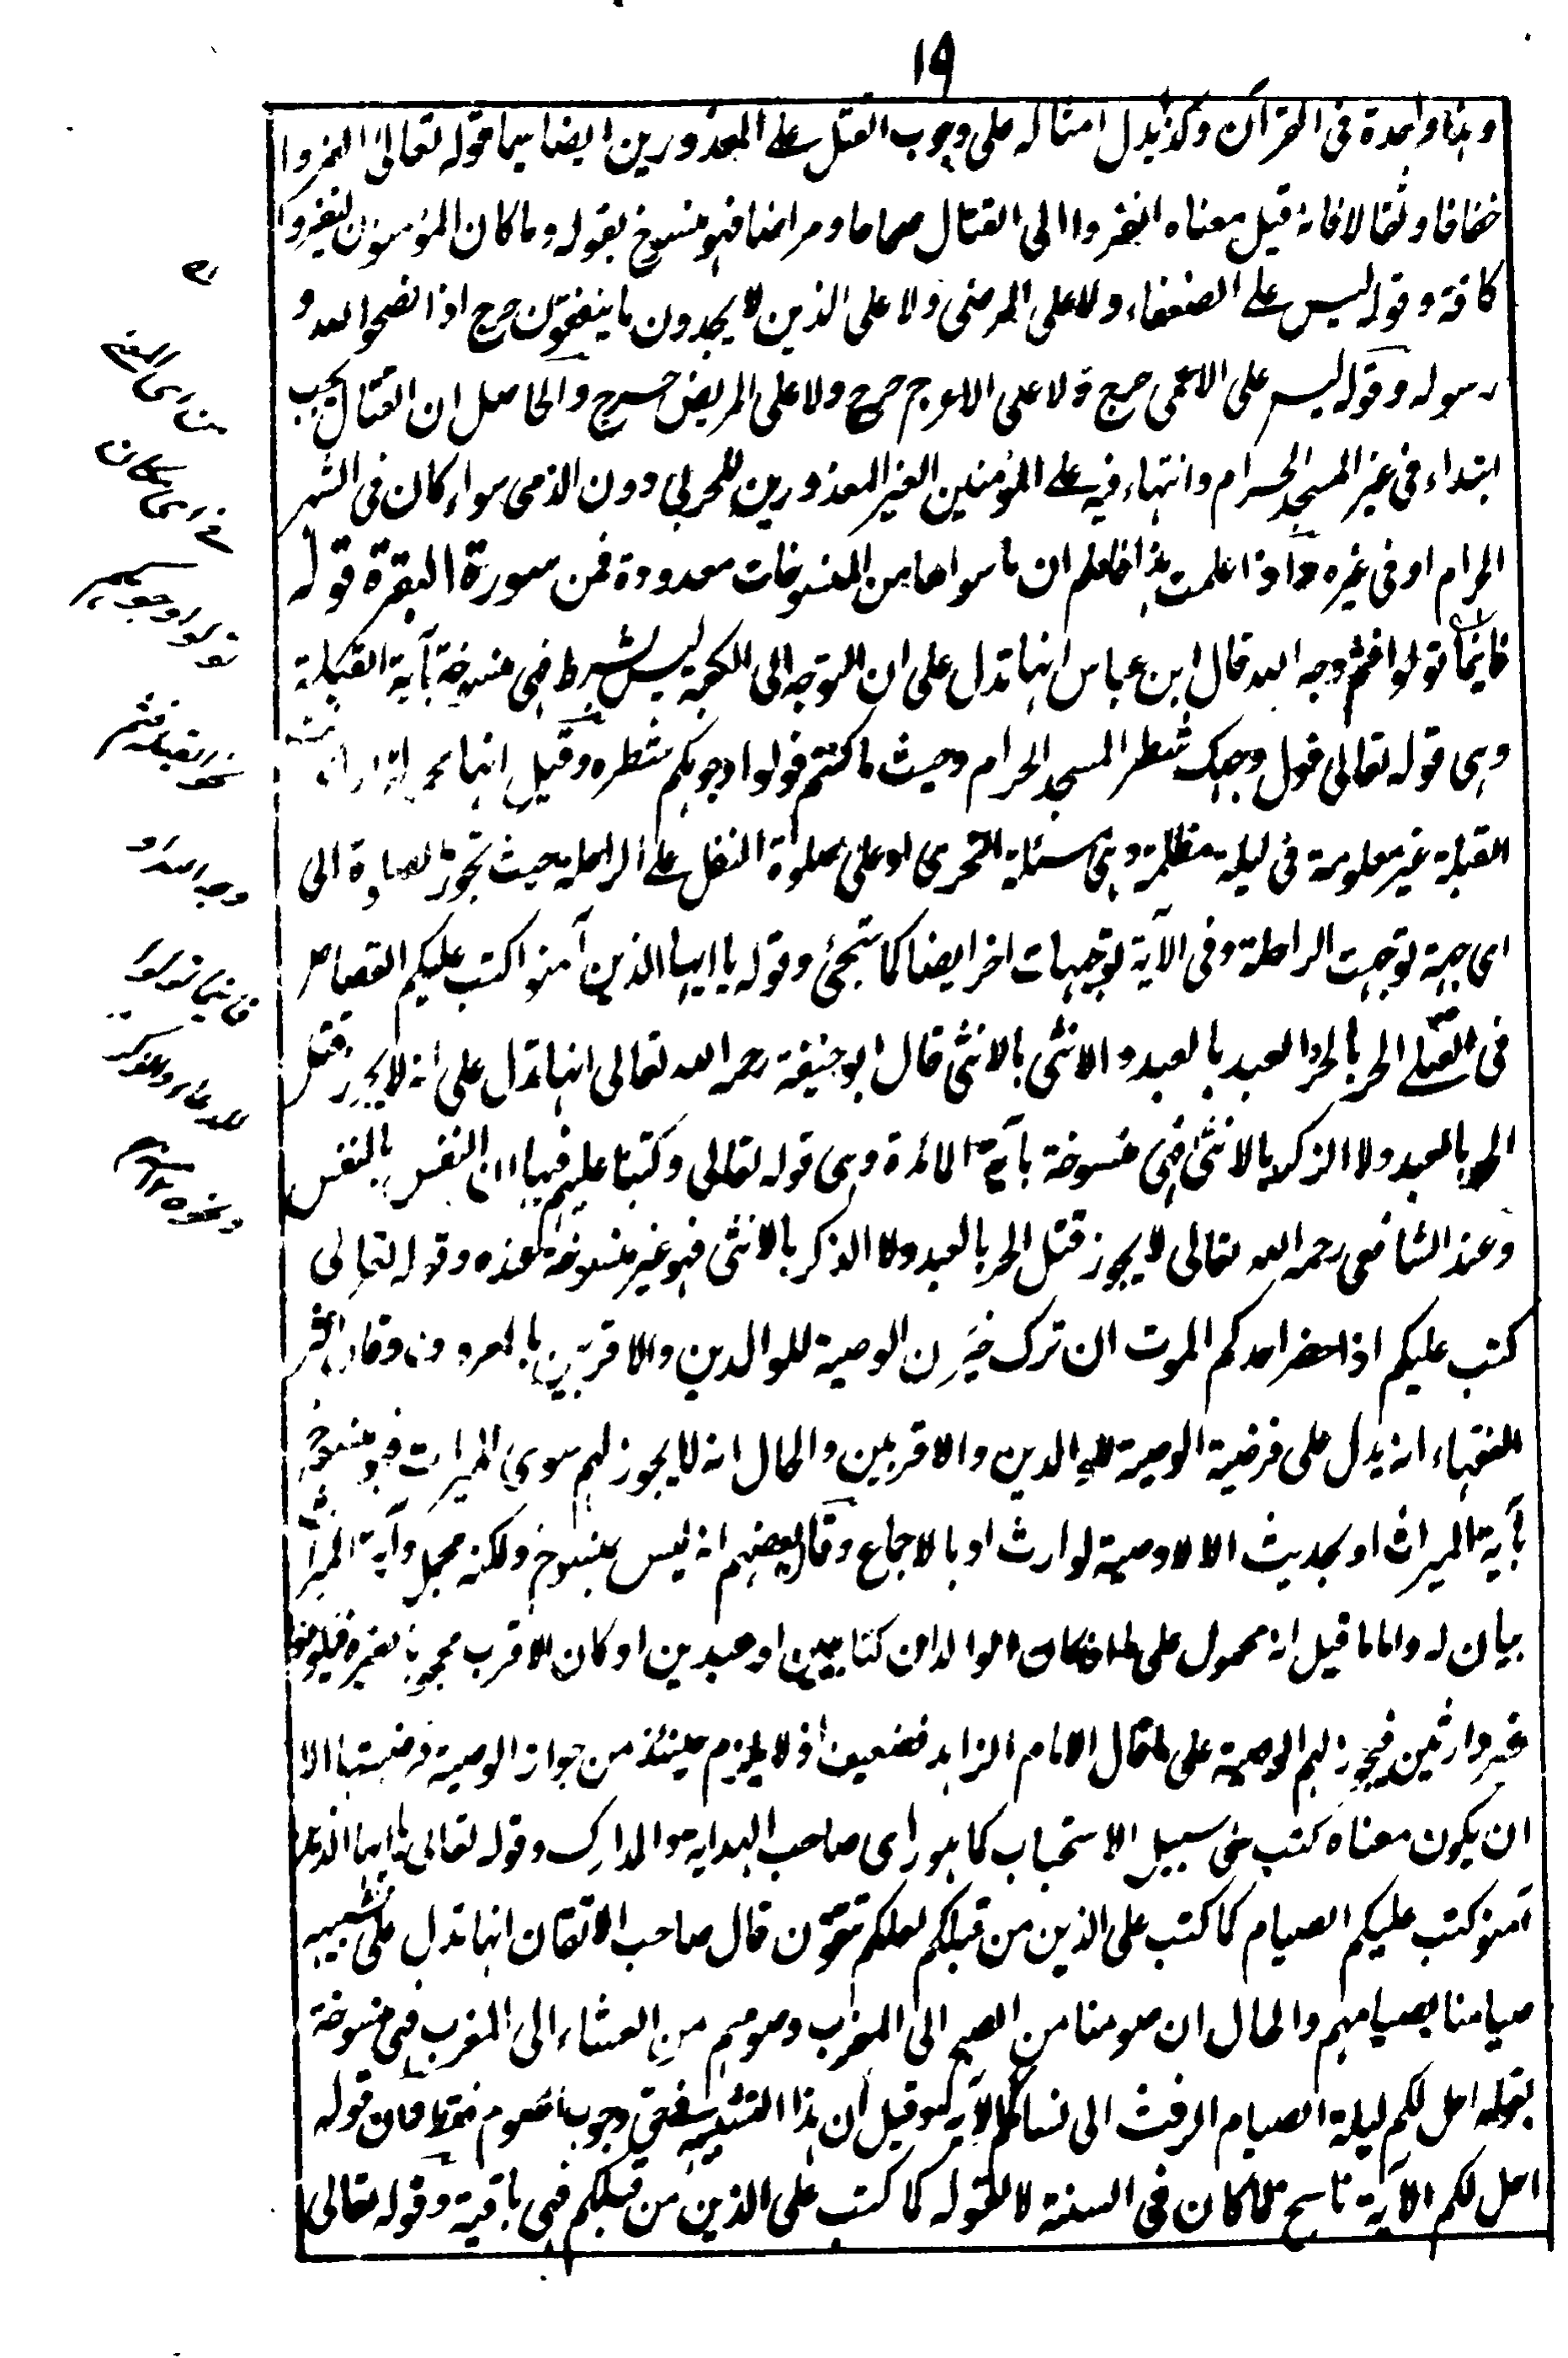 ١٩
وہذا واحدة فی القرآن وکذا یدل امثاله علی وجوب القتل علی المعذورین ایضا سیما قوله تعالی انفروا
خفافا وثقالا فانه قیل معناه انفروا الی القتال صحاحا ومراضا فهو منسوخ بقوله وما کان المؤمنون لینفروا
کافة وقوله لیس علی الضعفاء ولا علی المرضی ولا علی الذین لا یجدون ما ینفقون حرج اذا نصحوا لله و
رسوله وقوله لیس علی الاعمی حرج ولا علی الاعرج حرج ولا علی المریض حرج والحاصل ان القتال یجب
ابتداء فی غیر المسجد الحرام وانتهاء فیه علی المؤمنین الغیر المعذورین للحربی دون الذمی سواء کان فی الشهر
الحرام او فی غیره واذا علمت هذا فاعلم ان ما سواها من المنسوخات معدودة فمن سورة البقرة قوله
فاینما تولوا فثم وجه الله قال ابن عباس انها تدل علی ان التوجه الی الکعبة لیس بشرط فهی منسوخة بآیة القبلة
وهی قوله تعالی فول وجهک شطر المسجد الحرام وحیث ما کنتم فولوا وجوهکم شطره وقیل انها
القبلة غیر معلومة فی لیلة مظلمة وهی مسئلة التحری او علی صلوة النفل علی الراحلة حیث تجوز الصلوة الی
ای جهة توجهت الراحلة وفی الآیة توجیهات اخر ایضا کما ستجئ وقوله یا ایها الذین آمنوا کتب علیکم القصاص
فی القتلی الحر بالحر والعبد بالعبد والانثی بالانثی قال ابو حنیفة رحمه الله تعالی انها تدل علی انه لا یجوز قتل
الحر بالعبد ولا الذکر بالانثی فهی منسوخة بآیة المائدة وهی قوله تعالی وکتبنا علیهم فیها ان النفس بالنفس
وعند الشافعی رحمه الله تعالی لا یجوز قتل الحر بالعبد ولا الذکر بالانثی فهو غیر منسوخة عنده وقوله تعالی
کتب علیکم اذا حضر احدکم الموت ان ترک خیرن الوصیة للوالدین والاقربین بالمعروف وقال اکثر
الفقهاء انه یدل علی فرضیة الوصیة للوالدین والاقربین والحال انه لا یجوز لهم سوی المیراث فهو منسوخ
بآیة المیراث او بحدیث الا لا وصیة لوارث او بالاجماع وقال بعضهم انه لیس بمنسوخ ولکنه مجمل وآیة المیراث
بیان له واما ما قیل انه محمول علی ما اذا کان الوالدان کتابیین او عبدین او کان الاقرب محجوبا بغیره فیکونوا
غیر وارثین فیجوز لهم الوصیة علی ما قال الامام الزاهد فضعیف اذ لا یلزم حینئذ من جواز الوصیة فرضیتها الا
ان یکون معناه کتب علی سبیل الاستحباب کما هو رای صاحب الهدایة والمدارک وقوله تعالی یا ایها الذین
آمنوا کتب علیکم الصیام کما کتب علی الذین من قبلکم لعلکم تتقون قال صاحب الاتقان انها تدل علی تشبیه
صیامنا بصیامهم والحال ان صومنا من الصبح الی المغرب وصومهم من العشاء الی المغرب فهی منسوخة
بقوله احل لکم لیلة الصیام الرفث الی نسائکم الآیة وقیل ان هذا التشبیه فی حق وجوب الصوم فقط فان قوله
احل لکم الآیة ناسخ لما کان فی السنة لا لقوله کما کتب علی الذین من قبلکم فهی باقیة وقوله تعالی